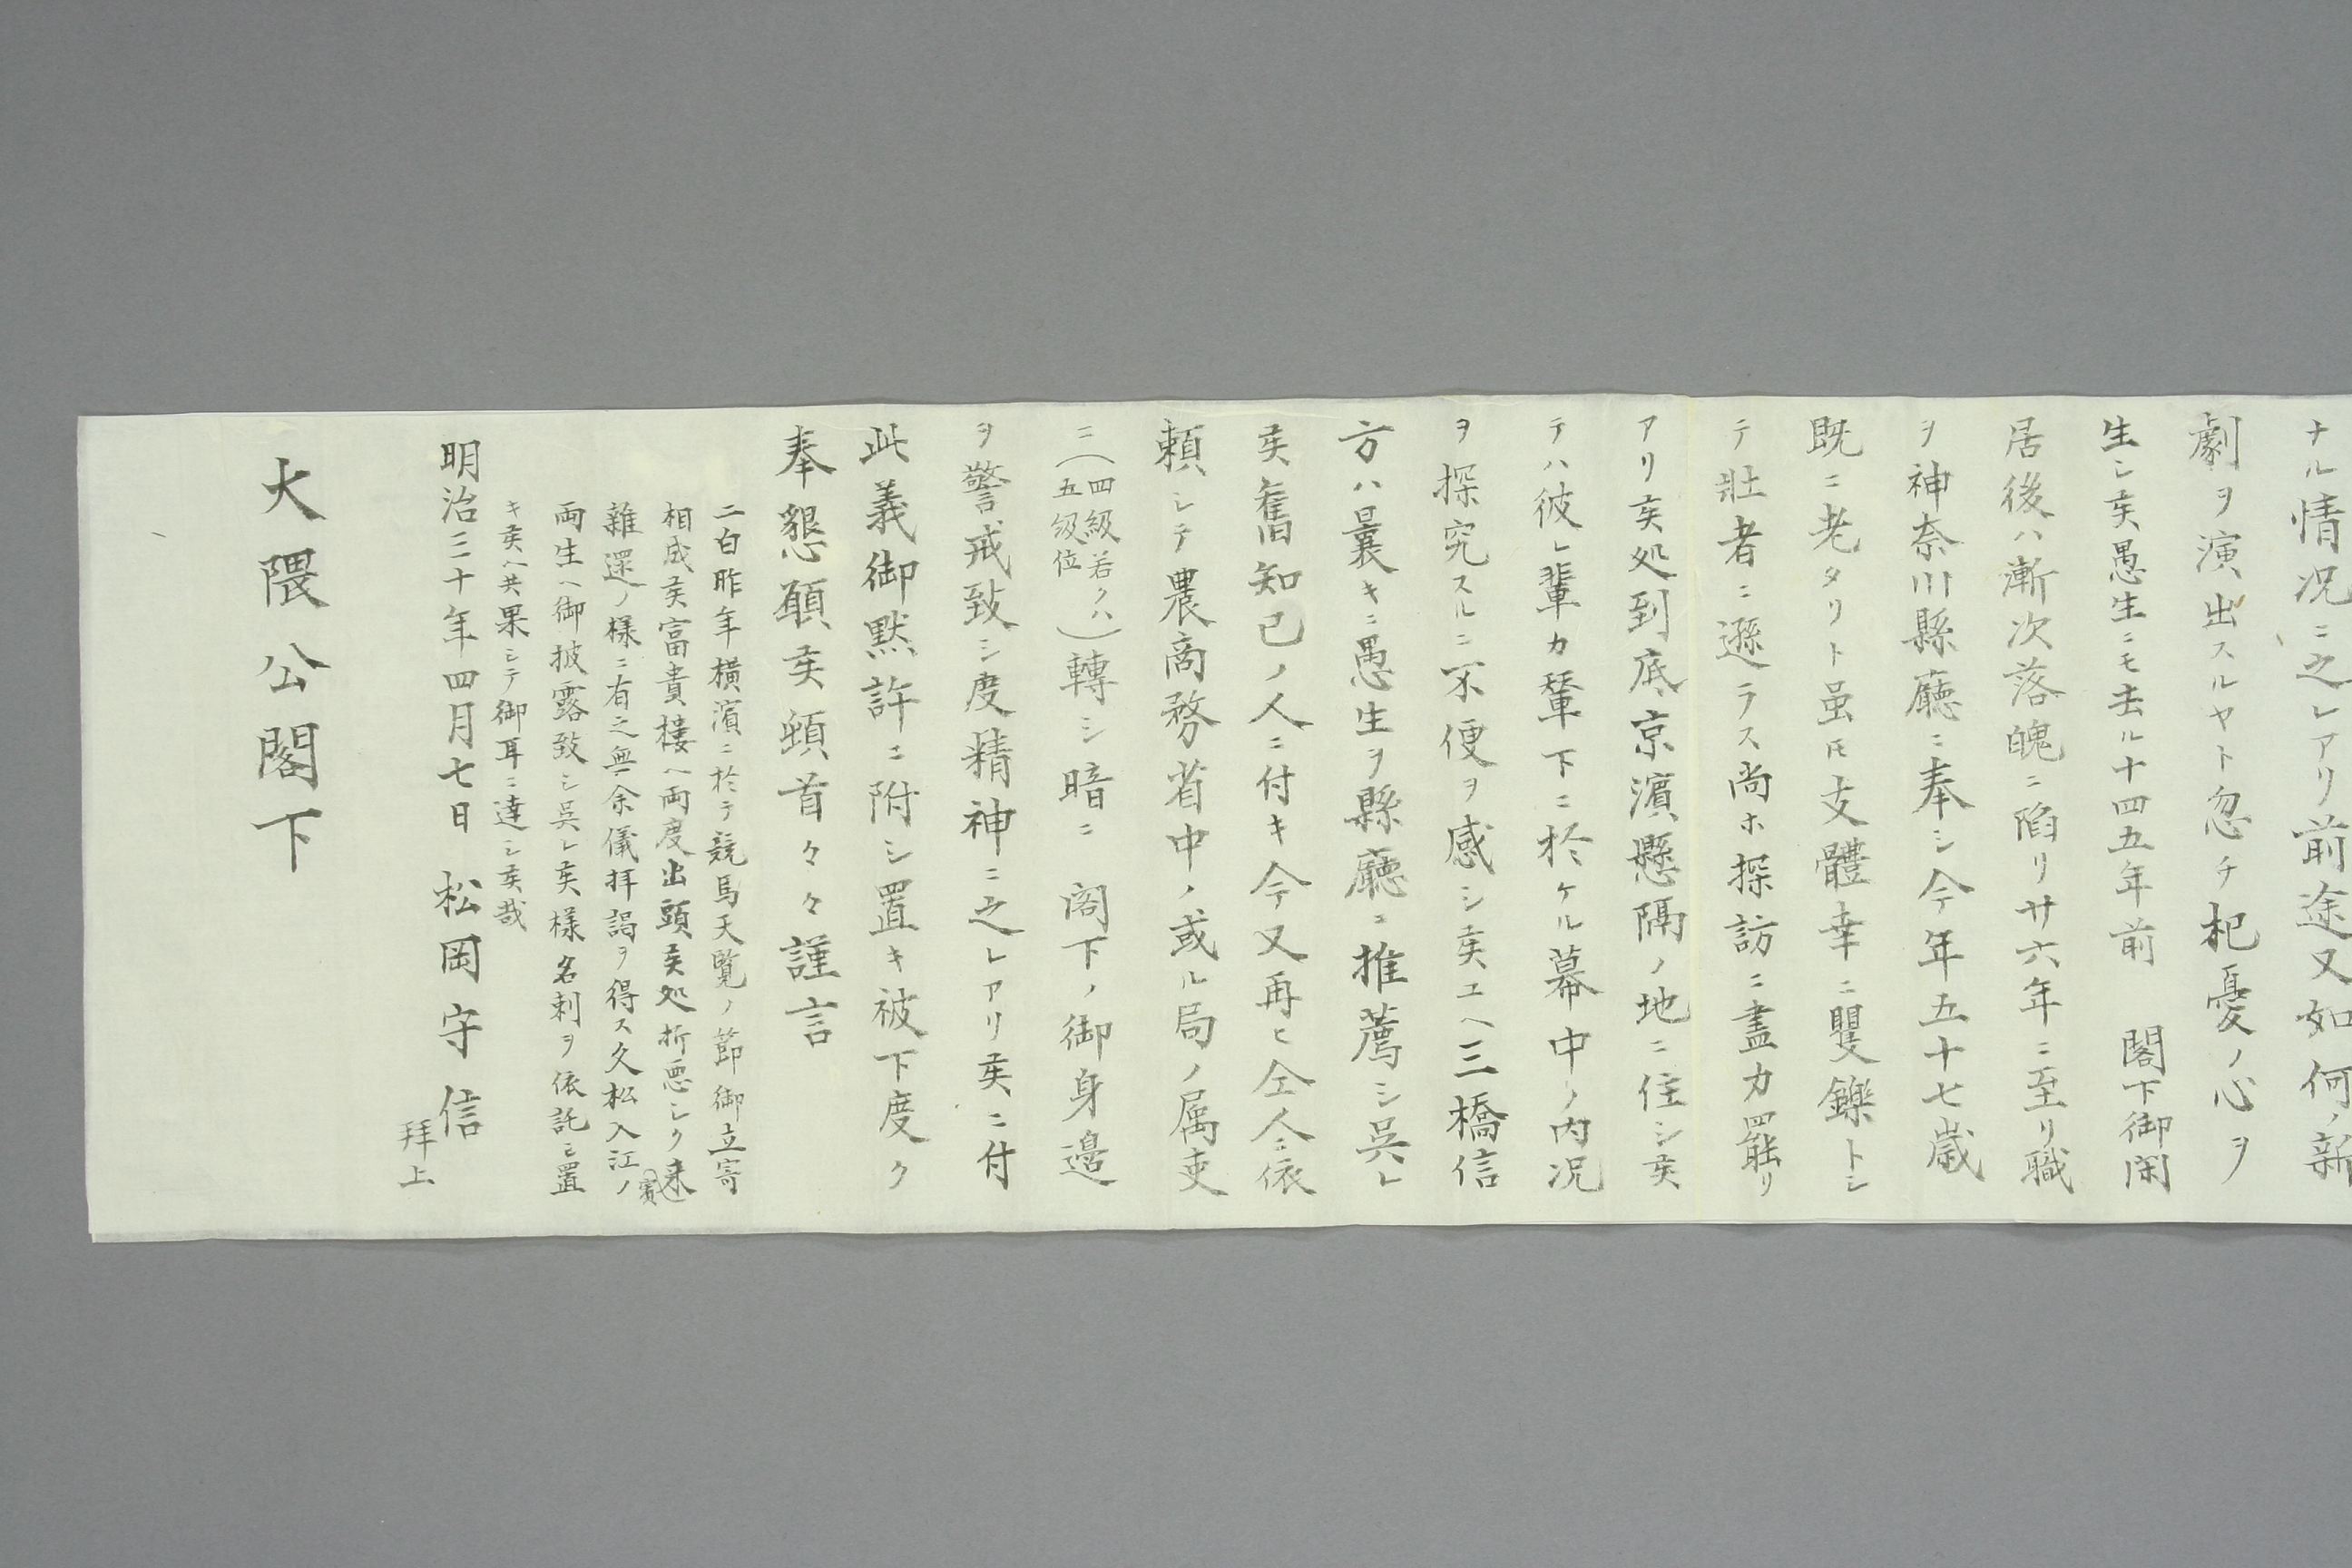 ナル情况ニ之レアリ前途又如何ノ新
劇ヲ演出スルヤト忽チ杞憂ノ心ヲ
生シ候愚生ニモ去ル十四五年前　閣下御閑
居後ハ漸次落魄ニ陷リ廿六年ニ至リ職
ヲ神奈川縣廳ニ奉シ今年五十七歳
既ニ老タリト虽𪜈支體幸ニ矍鑠トシ
テ壯者ニ遜ラス尚ホ探訪ニ盡力罷リ
アリ候処到底京濱懸隔ノ地ニ住シ候
テハ彼レ輩カ輦下ニ於ケル幕中ノ内況
ヲ探究スルニ不便ヲ感シ候エヘ三橋信
方ハ曩キニ愚生ヲ縣廳ニ推薦シ呉レ
候舊知己ノ人ニ付キ今又再ヒ仝人ニ依
頼シテ農商務省中ノ或ル局ノ属吏
ニ（四級若クハ五級位）轉シ暗ニ　閣下ノ御身邊
ヲ警戒致シ度精神ニ之レアリ候ニ付
此義御黙許ニ附シ置キ被下度ク
奉懇願候頓首々々謹言
二白昨年横濱ニ於テ競馬天覧ノ節御立寄
相成候富貴楼ヘ両度出頭候処折悪シク来賓
雜還ノ様ニ有之無余儀拝謁ヲ得ス久松入江ノ
両生ヘ御披露致シ呉レ候様名刺ヲ依託シ置
キ候ヘ共果シテ御耳ニ達シ候哉
明治三十年四月七日　松岡守信
拝上
大隈公閣下